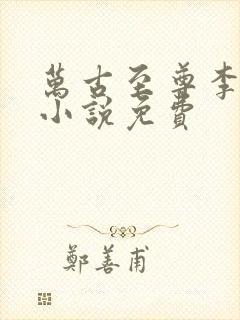 萬古至尊李
小說免費
鄭善甫